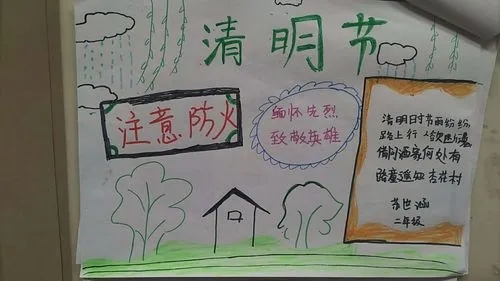 清明节
注意防火
缅怀先烈
致敬英雄
清明时节雨纷纷
路上行人欲断魂
借问酒家何处有
路童遥知杏花村
涵
二年级